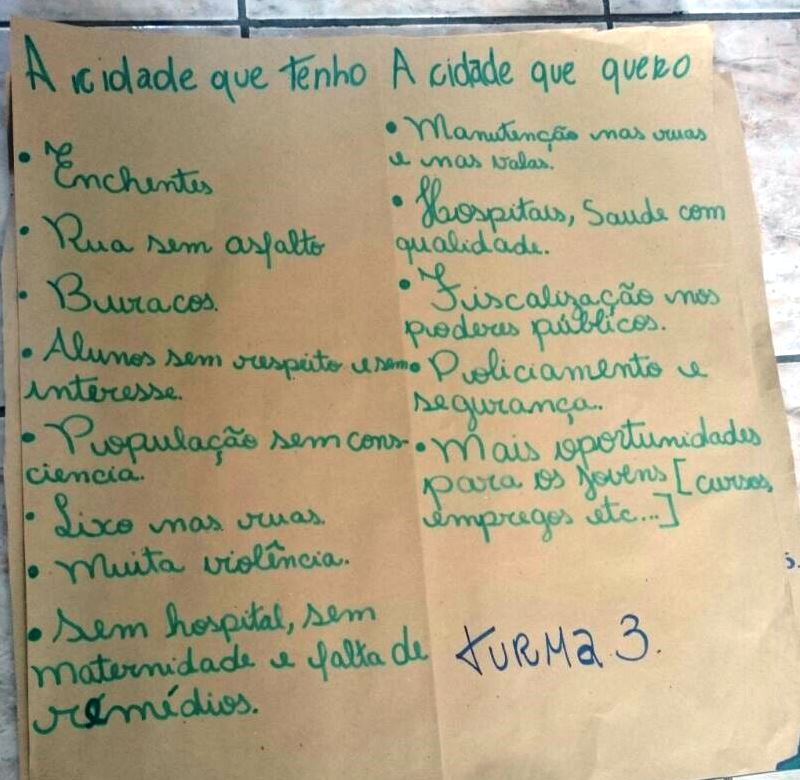 A cidade que tenho
• Enchentes
• Rua sem asfalto
• Buracos.
• Alunos sem respeito e sem
interesse.
• População sem cons-
ciencia.
• Lixo nas ruas
• Muita violência.
• Sem hospital, sem
maternidade e falta de
remédios.
A cidade que quero
• Manutenção nas ruas
e nas valas.
• Hospitais, Saude com
qualidade.
• Fiscalização nos
poderes públicos.
• Policiamento e
segurança.
• Mais oportunidades
para os jovens [cursos,
empregos etc...]
turma 3.